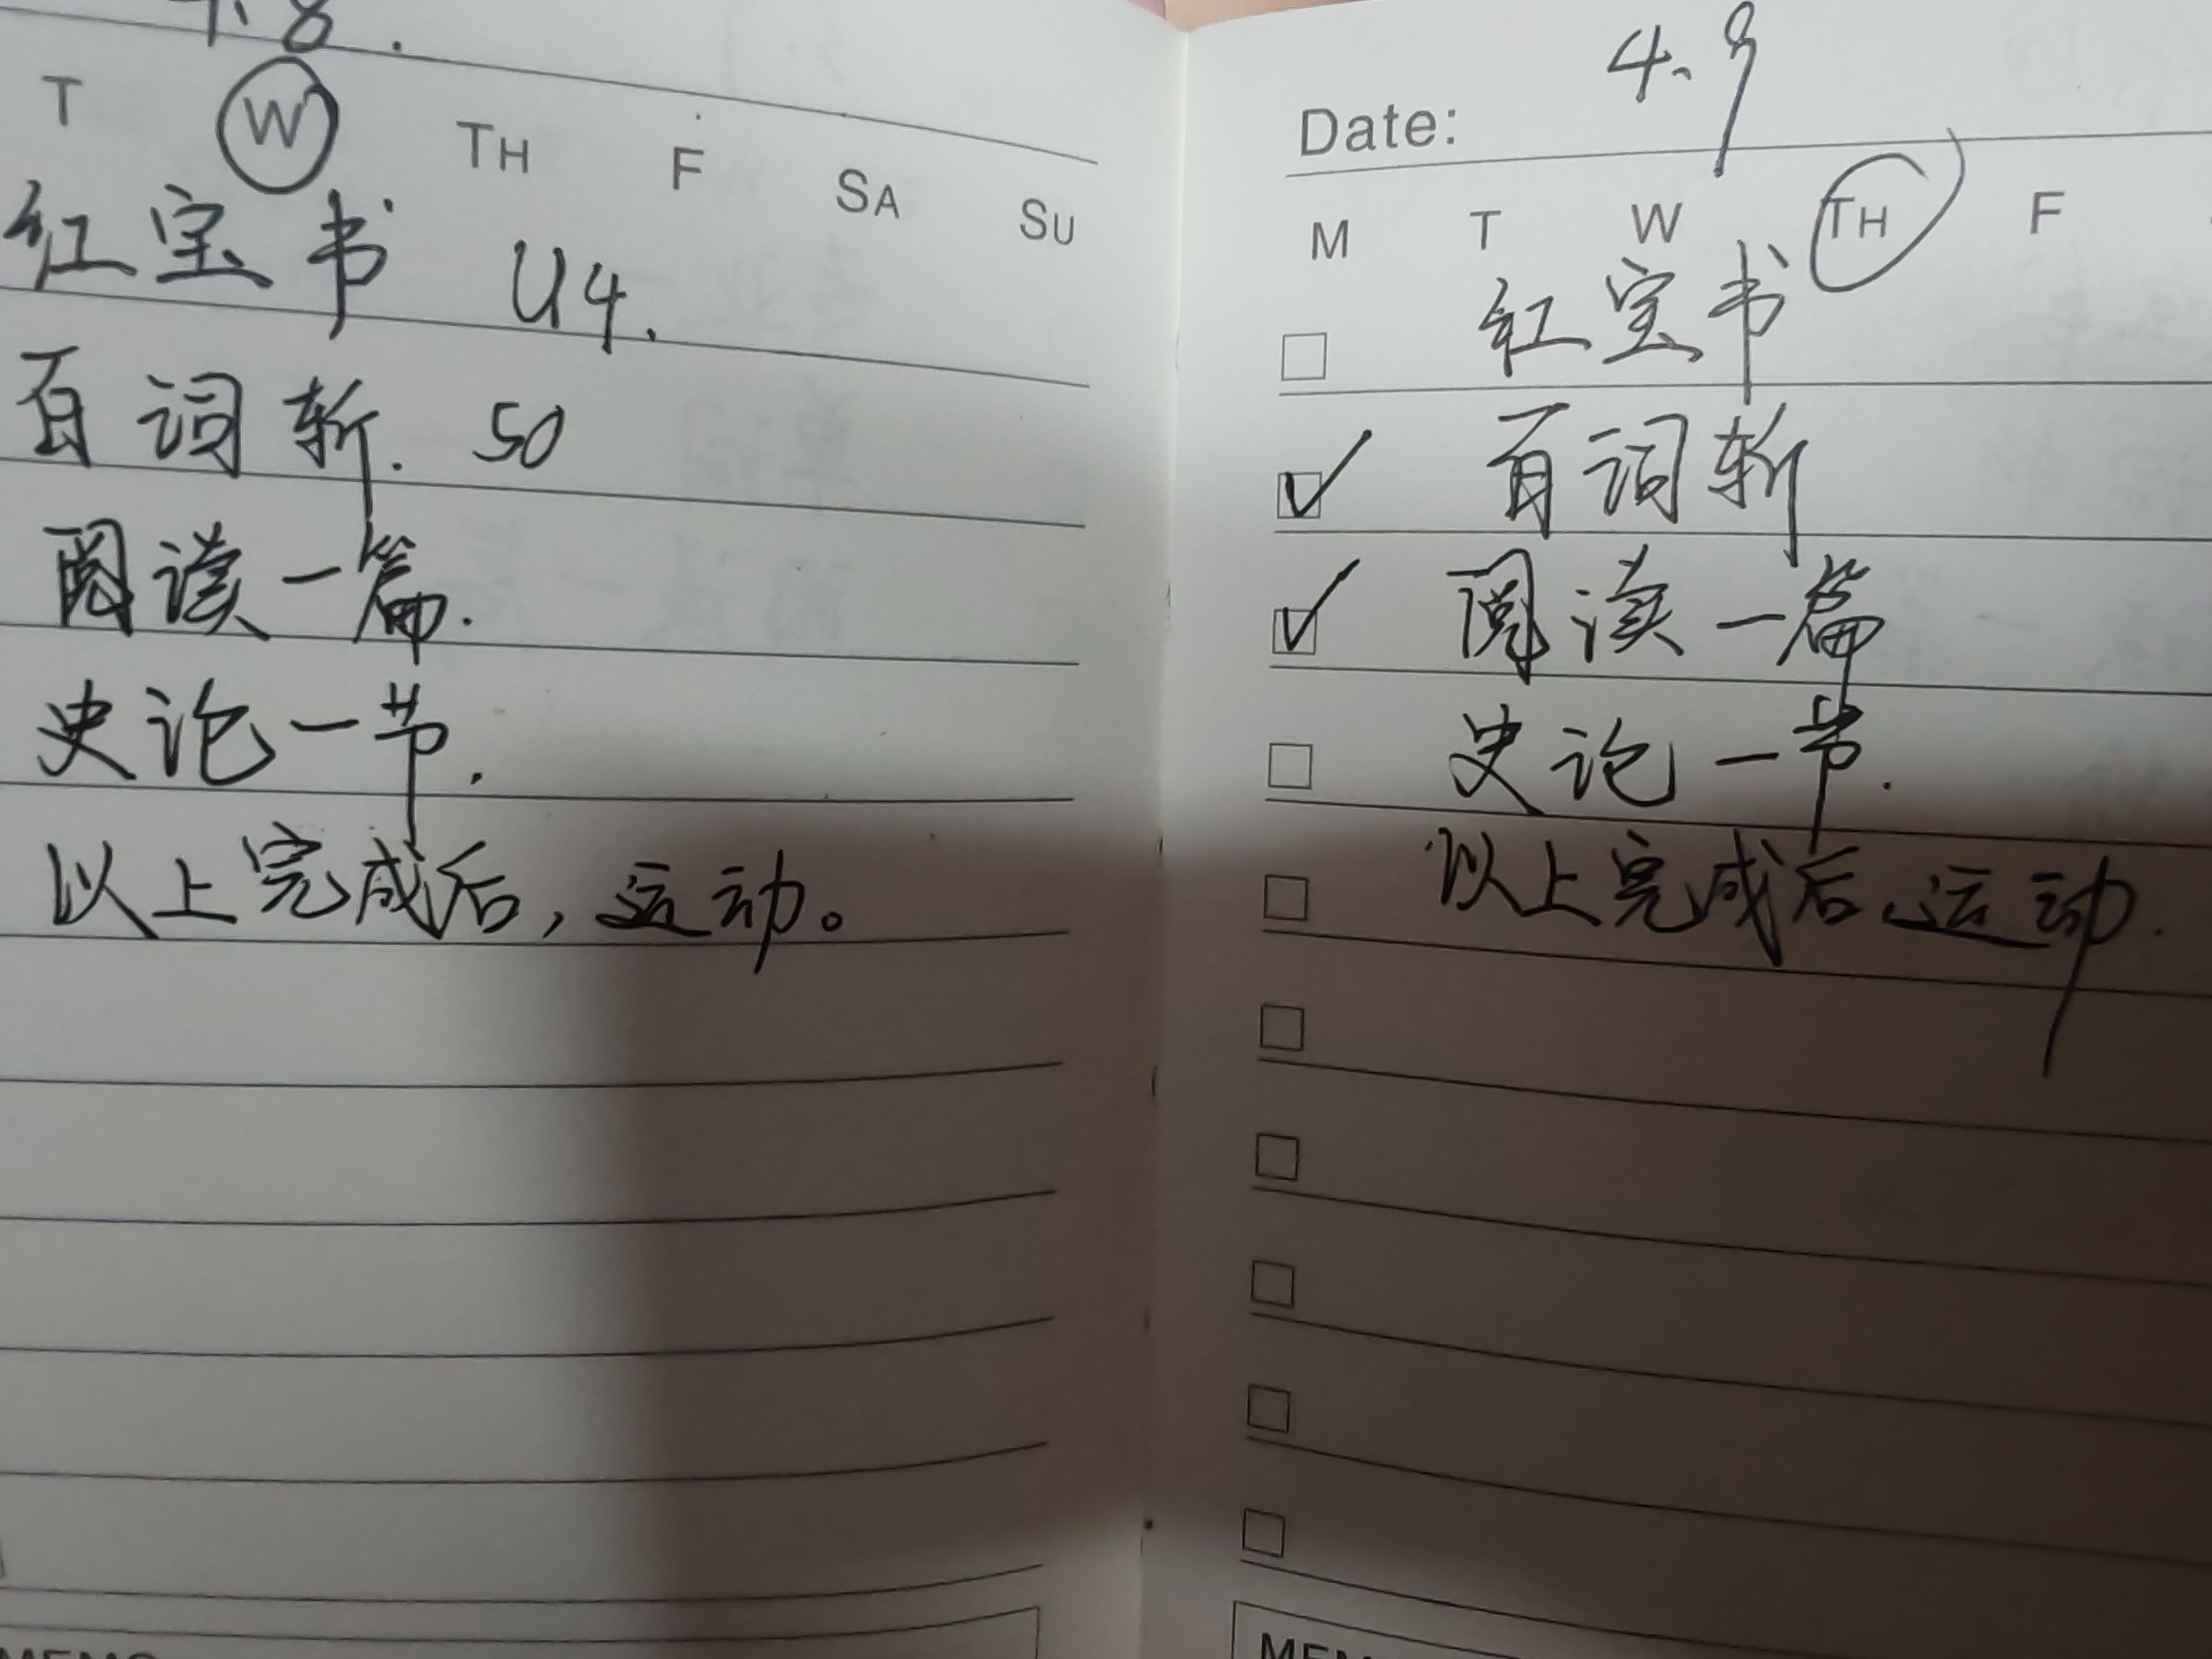 4.8.
T W TH F SA SU
红宝书 U4.
百词斩. 50
阅读一篇.
史论一节.
以上完成后，运动。
4.9
Date:
M T W TH F
红宝书
百词斩
阅读一篇
史论一节.
以上完成后、运动.